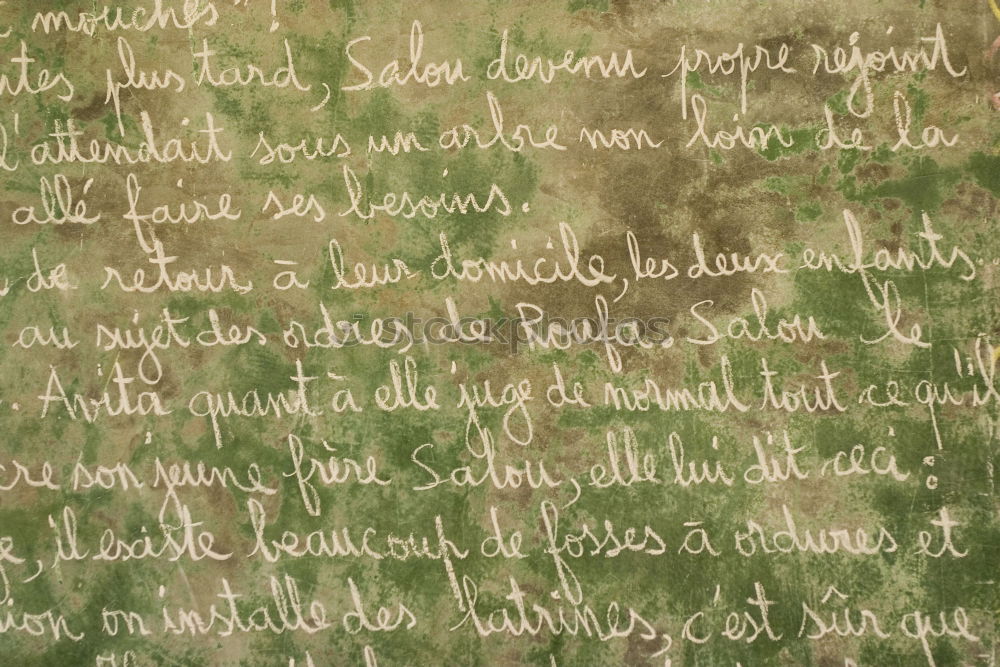 mouches" !
ntes plus tard, Salou devenu propre rejoint
l'attendait sous un arbre non loin de la
allé faire ses besoins.
de retour à leur domicile, les deux enfants
au sujet des ordres de Roufa. Salou le
. Avita quant à elle juge de normal tout ce qu'il
cre son jeune frère Salou, elle lui dit ceci :
e, il existe beaucoup de fosses à ordures et
ion on installe des latrines, c'est sûr que